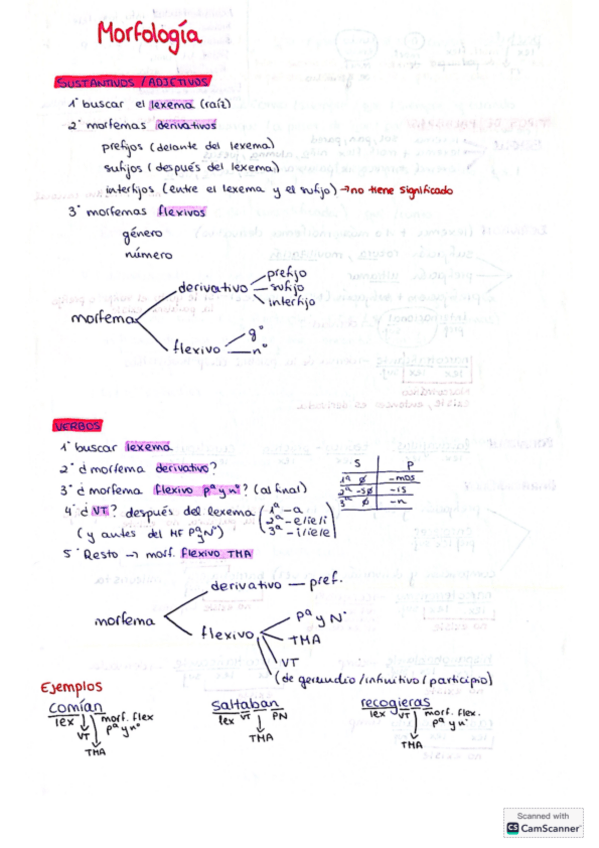 Morfología
SUSTANTIVOS / ADJETIVOS
1º buscar el lexema (raíz)
2º morfemas derivativos
prefijos (delante del lexema)
sufijos (después del lexema)
interfijos (entre el lexema y el sufijo) → no tiene significado
3º morfemas flexivos
género
número
morfema
derivativo
prefijo
sufijo
interfijo
flexivo
gº
nº
VERBOS
1º buscar lexema
2º ¿morfema derivativo?
3º ¿morfema flexivo pª y nº? (al final)
4º ¿VT? después del lexema
(y antes del MF Pª y Nº)
1ª - a
2ª - e/ie/i
3ª - i/ie/e
5º Resto → morf. flexivo TMA
S P
1ª ∅ -mos
2ª -s∅ -is
3ª ∅ -n
morfema
derivativo — pref.
flexivo
Pª y Nº
TMA
VT
(de gerundio / infinitivo / participio)
Ejemplos
comían
lex
VT
TMA
morf. flex
pª y nº
saltaban
lex VT PN
TMA
recogieras
lex VT morf. flex.
pª y nº
TMA
Scanned with
CS CamScanner